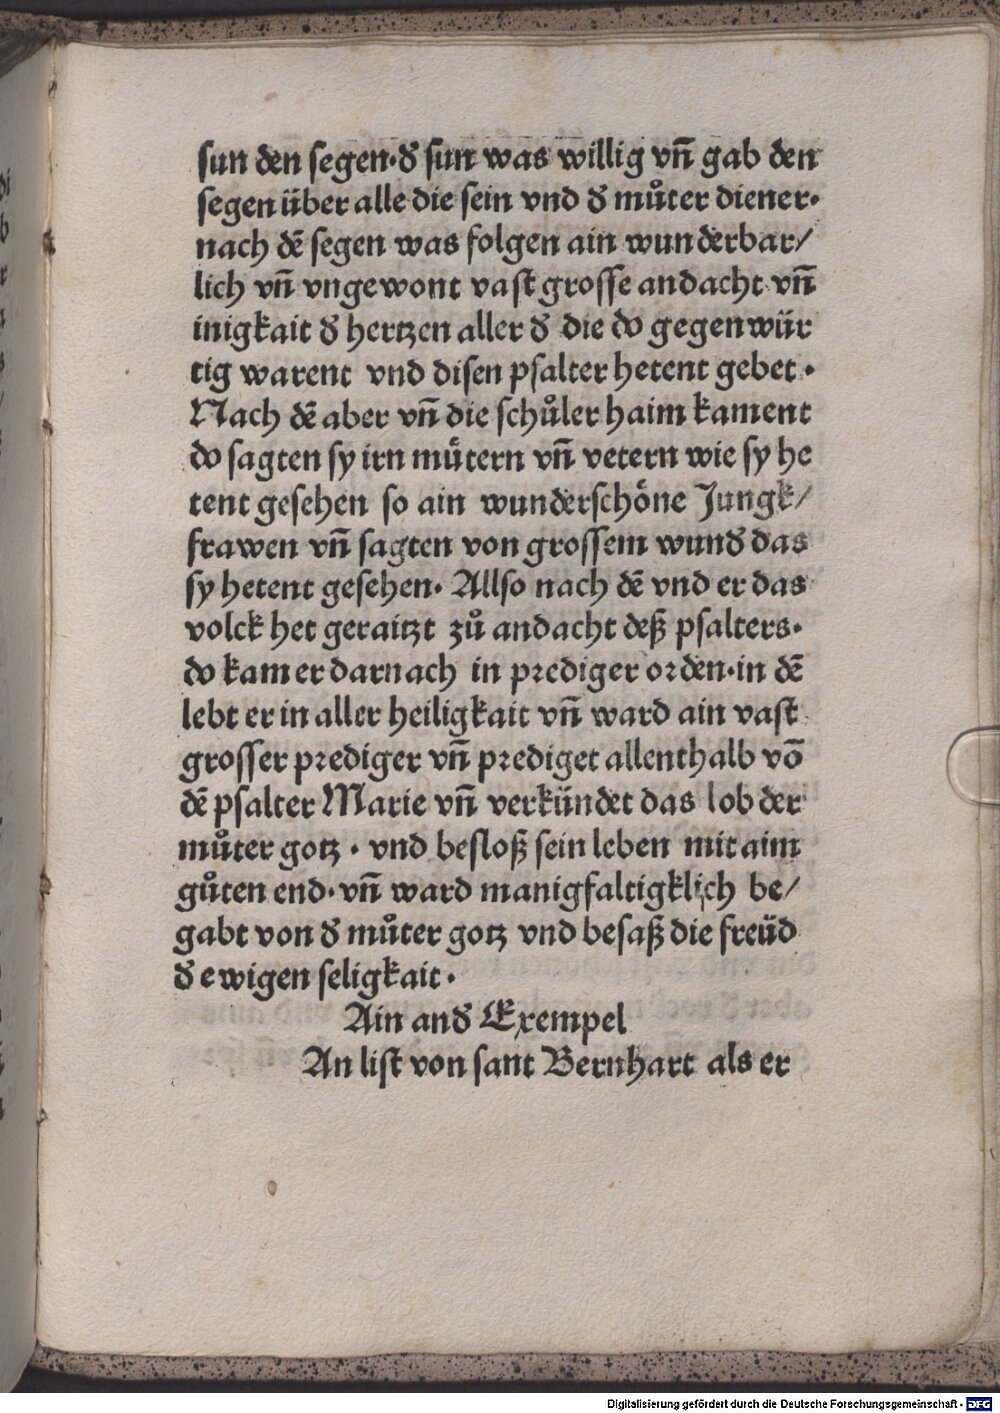 ſun den ſegen·đ ſun was willig vñ gab den
ſegen über alle die ſein vnd đ můter diener·
nach dē ſegen was folgen ain wunderbar/
lich vñ vngewont vaſt groſſe andacht vñ
inigkait đ hertzen aller đ die do gegenwür
tig warent vnd diſen pſalter hetent gebet·
Nach dē aber vñ die ſchůler haim kament
do ſagten ſy irn muͤtern vñ vetern wie ſy he
tent geſehen ſo ain wunderſchöne Jungk/
frawen vñ ſagten von groſſem wunđ das
ſy hetent geſehen· Allſo nach dē vnd er das
volck het geraitzt zů andacht deß pſalters·
do kam er darnach in prediger orden·in dē
lebt er in aller heiligkait vñ ward ain vaſt
groſſer prediger vñ prediget allenthalb vō
dē pſalter Marie vñ verkündet das lob der
můter gotz · vnd beſloß ſein leben mit aim
gůten end·vñ ward manigfaltigklich be/
gabt von đ můter gotz vnd beſaß die freüd
đ ewigen ſeligkait·
Ain anđ Exempel
An liſt von ſant Bernhart als er
Digitalisierung gefördert durch die Deutsche Forschungsgemeinschaft - DFG